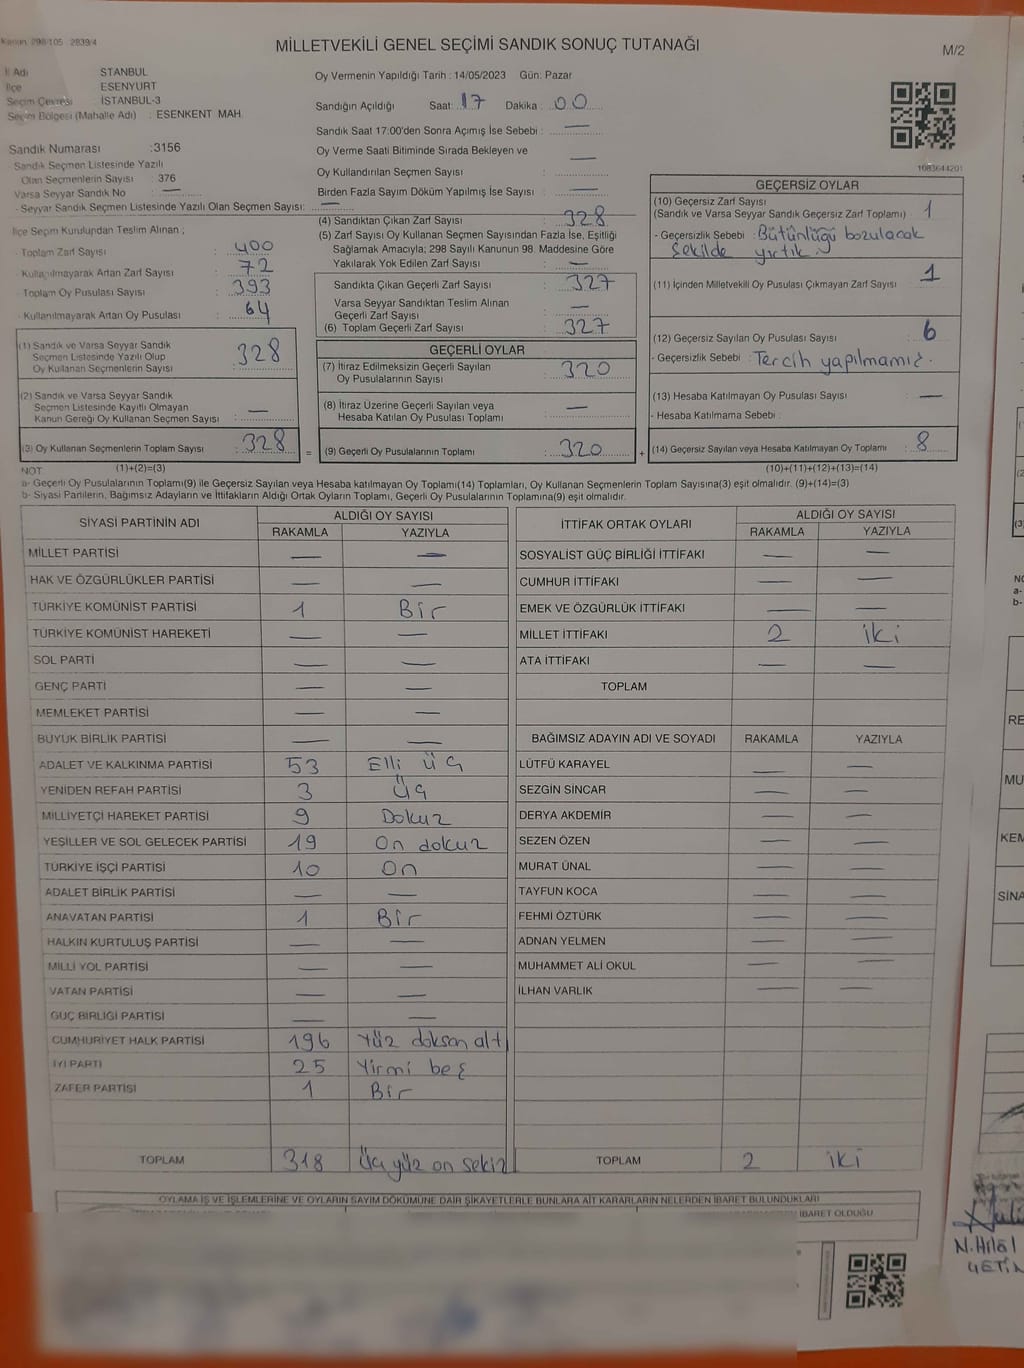 Kanun: 298/105 - 2839/4
MİLLETVEKİLİ GENEL SEÇİMİ SANDIK SONUÇ TUTANAĞI
M/2
İl Adı STANBUL
İlçe ESENYURT
Seçim Çevresi İSTANBUL-3
Seçim Bölgesi (Mahalle Adı) : ESENKENT MAH
Sandık Numarası :3156
Sandık Seçmen Listesinde Yazılı
Olan Seçmenlerin Sayısı : 376
Varsa Seyyar Sandık No : —
Seyyar Sandık Seçmen Listesinde Yazılı Olan Seçmen Sayısı: —
İlçe Seçim Kurulundan Teslim Alınan ;
Toplam Zarf Sayısı : 400
Kullanılmayarak Artan Zarf Sayısı : 72
Toplam Oy Pusulası Sayısı : 393
Kullanılmayarak Artan Oy Pusulası : 64
(1) Sandık ve Varsa Seyyar Sandık
Seçmen Listesinde Yazılı Olup
Oy Kullanan Seçmenlerin Sayısı : 328
(2) Sandık ve Varsa Seyyar Sandık
Seçmen Listesinde Kayıtlı Olmayan
Kanun Gereği Oy Kullanan Seçmen Sayısı : —
(3) Oy Kullanan Seçmenlerin Toplam Sayısı : 328
Oy Vermenin Yapıldığı Tarih : 14/05/2023 Gün: Pazar
Sandığın Açıldığı Saat: 17 Dakika : 00
Sandık Saat 17:00'den Sonra Açımış İse Sebebi : —
Oy Verme Saati Bitiminde Sırada Bekleyen ve
Oy Kullandırılan Seçmen Sayısı : —
Birden Fazla Sayım Döküm Yapılmış İse Sayısı : —
(4) Sandıktan Çıkan Zarf Sayısı : 328
(5) Zarf Sayısı Oy Kullanan Seçmen Sayısından Fazla İse, Eşitliği
Sağlamak Amacıyla; 298 Sayılı Kanunun 98. Maddesine Göre
Yakılarak Yok Edilen Zarf Sayısı : —
Sandıkta Çıkan Geçerli Zarf Sayısı : 327
Varsa Seyyar Sandıktan Teslim Alınan
Geçerli Zarf Sayısı : —
(6) Toplam Geçerli Zarf Sayısı : 327
GEÇERLİ OYLAR
(7) İtiraz Edilmeksizin Geçerli Sayılan
Oy Pusulalarının Sayısı : 320
(8) İtiraz Üzerine Geçerli Sayılan veya
Hesaba Katılan Oy Pusulası Toplamı : —
= (9) Geçerli Oy Pusulalarının Toplamı : 320 +
1083644201
GEÇERSİZ OYLAR
(10) Geçersiz Zarf Sayısı
(Sandık ve Varsa Seyyar Sandık Geçersiz Zarf Toplamı) : 1
- Geçersizlik Sebebi : Bütünlüğü bozulacak
Şekilde yırtık.
(11) İçinden Milletvekili Oy Pusulası Çıkmayan Zarf Sayısı : 1
(12) Geçersiz Sayılan Oy Pusulası Sayısı : 6
- Geçersizlik Sebebi : Tercih yapılmamış.
(13) Hesaba Katılmayan Oy Pusulası Sayısı : —
- Hesaba Katılmama Sebebi :
(14) Geçersiz Sayılan veya Hesaba Katılmayan Oy Toplamı : 8
NOT (1)+(2)=(3) (10)+(11)+(12)+(13)=(14)
a- Geçerli Oy Pusulalarının Toplamı(9) ile Geçersiz Sayılan veya Hesaba katılmayan Oy Toplamı(14) Toplamları, Oy Kullanan Seçmenlerin Toplam Sayısına(3) eşit olmalıdır. (9)+(14)=(3)
b- Siyasi Partilerin, Bağımsız Adayların ve İttifakların Aldığı Ortak Oyların Toplamı, Geçerli Oy Pusulalarının Toplamına(9) eşit olmalıdır.
SİYASİ PARTİNİN ADI ALDIĞI OY SAYISI
RAKAMLA YAZIYLA
MİLLET PARTİSİ — —
HAK VE ÖZGÜRLÜKLER PARTİSİ — —
TÜRKİYE KOMÜNİST PARTİSİ 1 Bir
TÜRKİYE KOMÜNİST HAREKETİ — —
SOL PARTİ — —
GENÇ PARTİ — —
MEMLEKET PARTİSİ — —
BÜYÜK BİRLİK PARTİSİ — —
ADALET VE KALKINMA PARTİSİ 53 Elli üç
YENİDEN REFAH PARTİSİ 3 Üç
MİLLİYETÇİ HAREKET PARTİSİ 9 Dokuz
YEŞİLLER VE SOL GELECEK PARTİSİ 19 On dokuz
TÜRKİYE İŞÇİ PARTİSİ 10 On
ADALET BİRLİK PARTİSİ — —
ANAVATAN PARTİSİ 1 Bir
HALKIN KURTULUŞ PARTİSİ — —
MİLLİ YOL PARTİSİ — —
VATAN PARTİSİ — —
GÜÇ BİRLİĞİ PARTİSİ — —
CUMHURİYET HALK PARTİSİ 196 Yüz doksan altı
İYİ PARTİ 25 Yirmi beş
ZAFER PARTİSİ 1 Bir
TOPLAM 318 Üç yüz on sekiz
İTTİFAK ORTAK OYLARI ALDIĞI OY SAYISI
RAKAMLA YAZIYLA
SOSYALİST GÜÇ BİRLİĞİ İTTİFAKI — —
CUMHUR İTTİFAKI — —
EMEK VE ÖZGÜRLÜK İTTİFAKI — —
MİLLET İTTİFAKI 2 iki
ATA İTTİFAKI — —
TOPLAM
BAĞIMSIZ ADAYIN ADI VE SOYADI RAKAMLA YAZIYLA
LÜTFÜ KARAYEL — —
SEZGİN SİNCAR — —
DERYA AKDEMİR — —
SEZEN ÖZEN — —
MURAT ÜNAL — —
TAYFUN KOCA — —
FEHMİ ÖZTÜRK — —
ADNAN YELMEN — —
MUHAMMET ALİ OKUL — —
İLHAN VARLIK — —
TOPLAM 2 iki
OYLAMA İŞ VE İŞLEMLERİNE VE OYLARIN SAYIM DÖKÜMÜNE DAİR ŞİKAYETLERLE BUNLARA AİT KARARLARIN NELERDEN İBARET BULUNDUKLARI
İBARET OLDUĞU
N. Hilal
ÇETİN